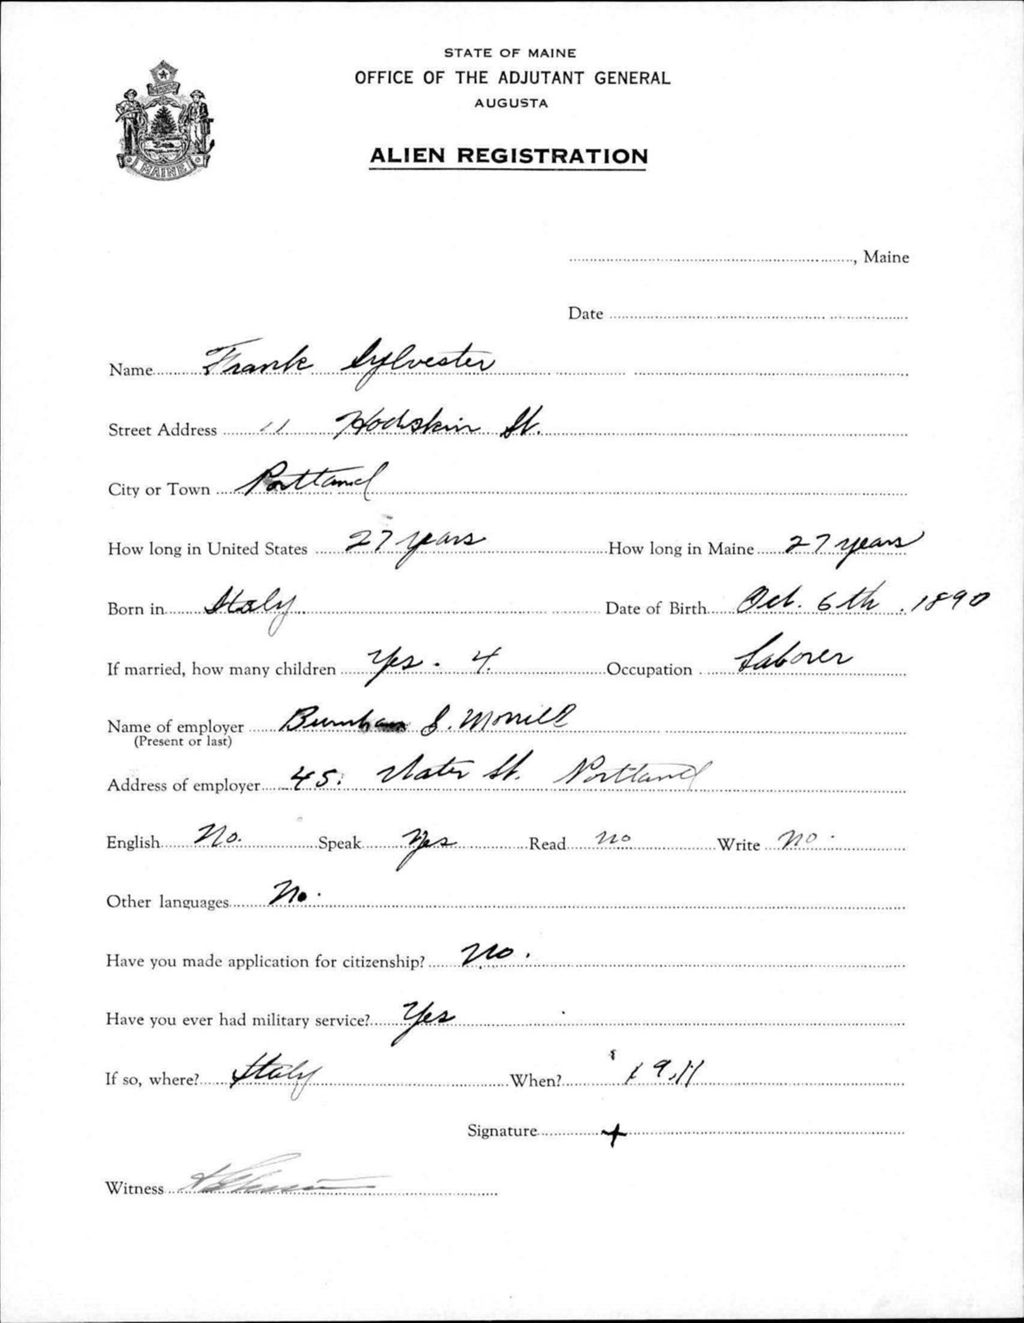 STATE OF MAINE
OFFICE OF THE ADJUTANT GENERAL
AUGUSTA
ALIEN REGISTRATION
MAINE
, Maine
Date
Name Frank Sylvester
Street Address 11 Hodskin St.
City or Town Portland
How long in United States 27 years How long in Maine 27 years
Born in Italy Date of Birth Oct. 6th, 1890
If married, how many children Yes. 4. Occupation Laborer
Name of employer Burnham & Morrill
(Present or last)
Address of employer 45. Water St. Portland
English No. Speak Yes Read no Write no.
Other languages No.
Have you made application for citizenship? No.
Have you ever had military service? Yes
If so, where? Italy When? 1911
Signature +
Witness